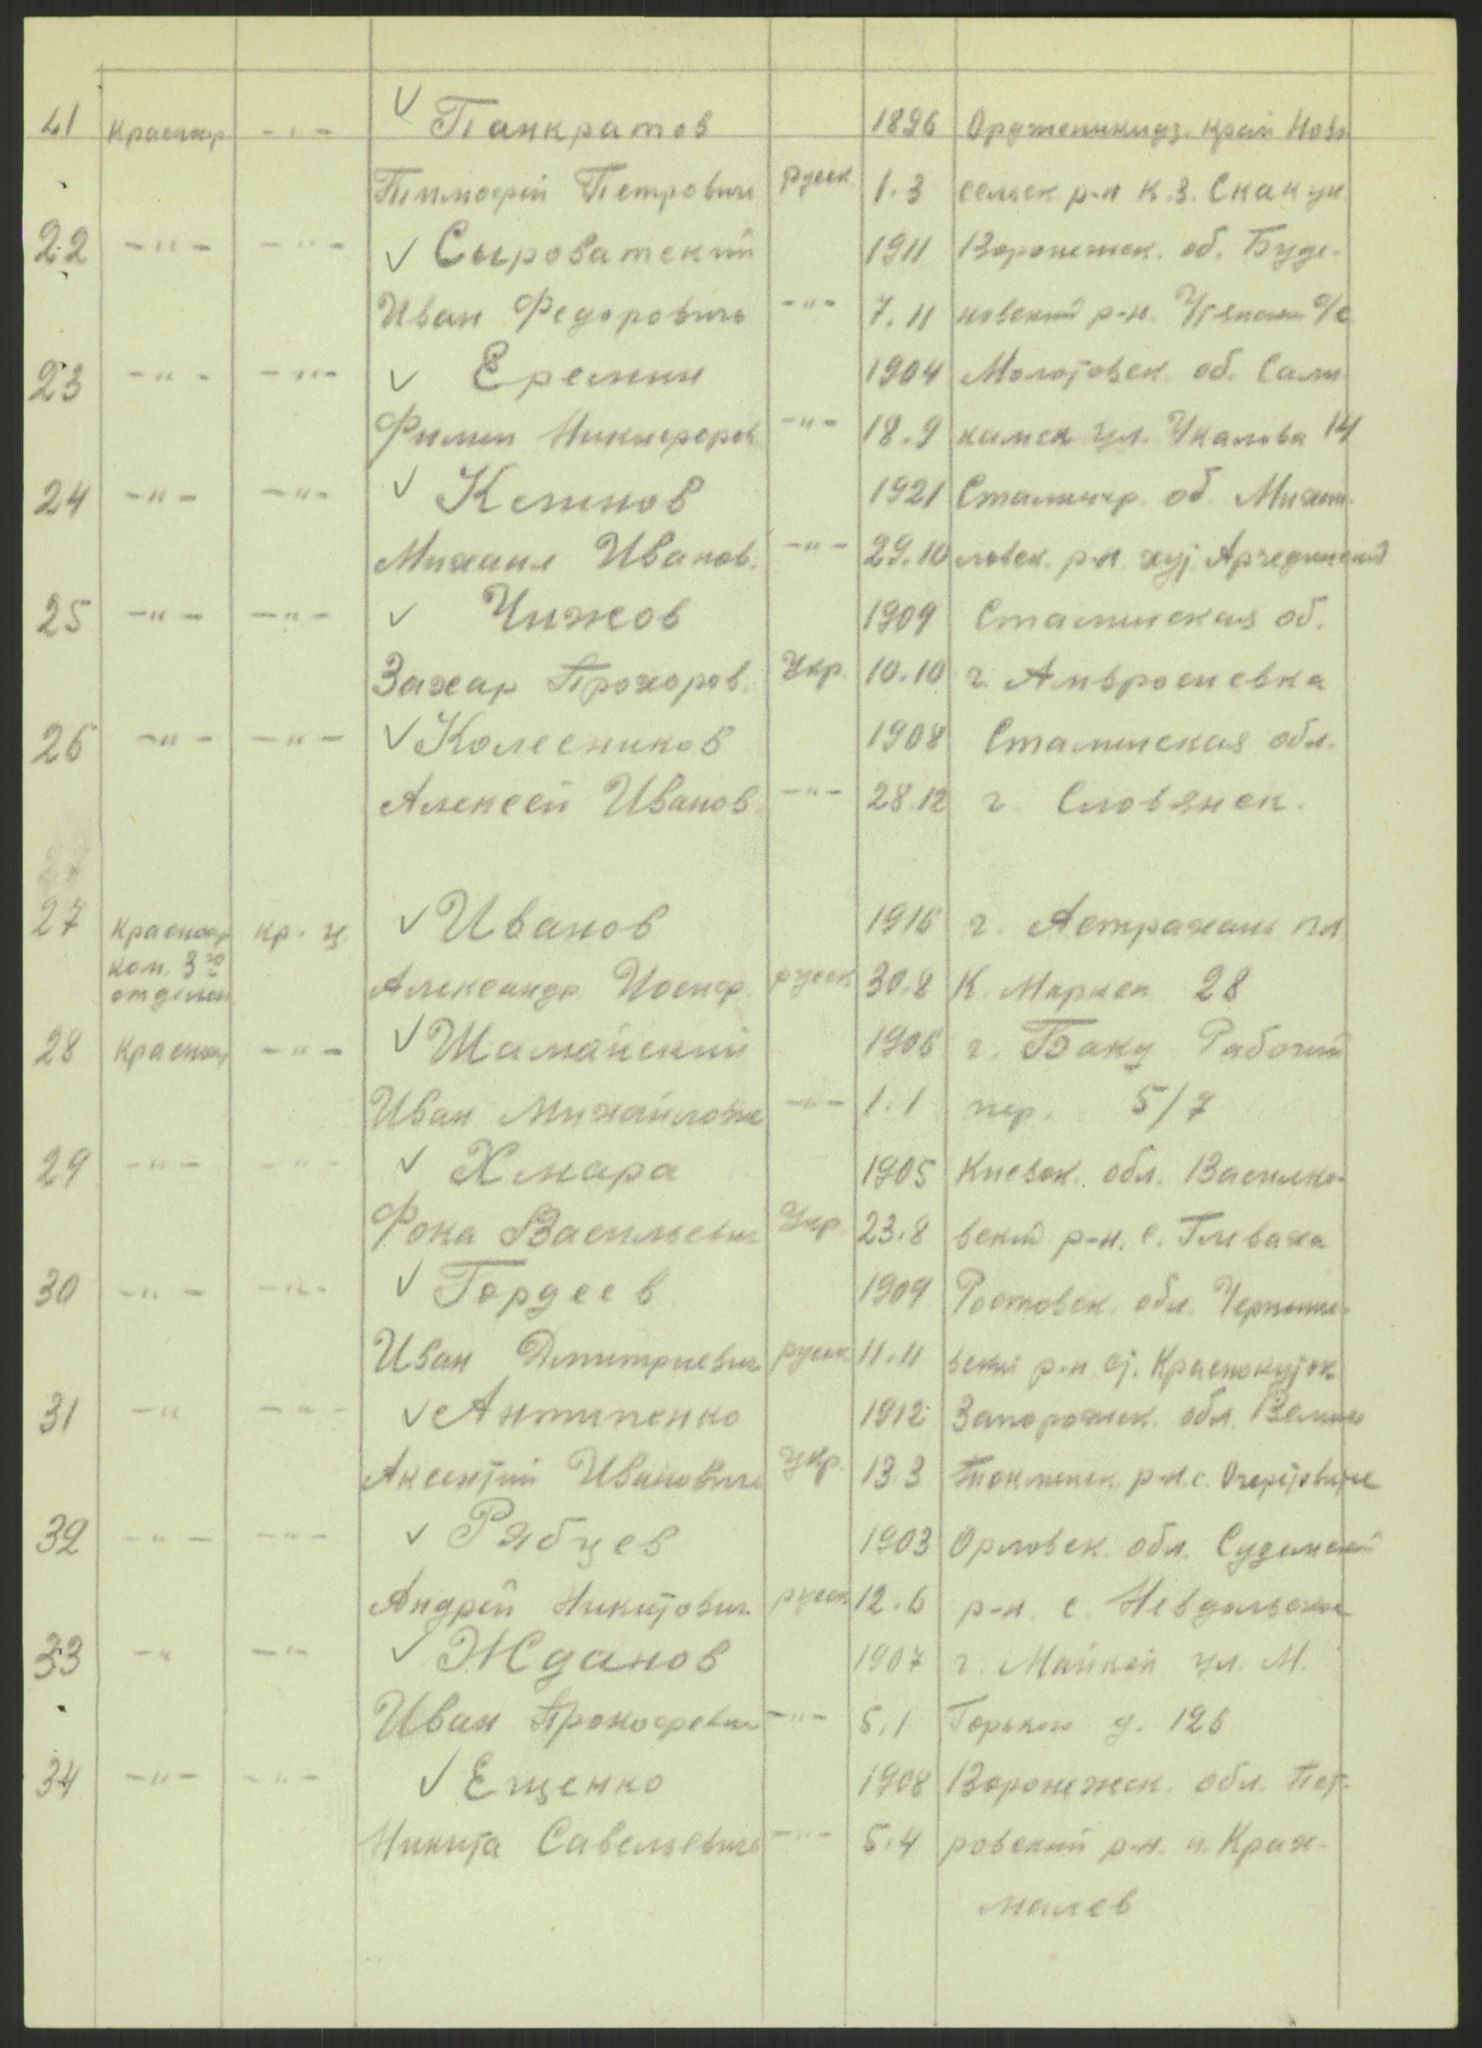 21 Красноар. -"- ✓ Панкратов 1896 Орджоникидз. край Ново
Тимофей Петрович русск 1.3 сельск. р-н к.з. Скакун
22 -"- -"- ✓ Сыроватский 1911 Воронежск. об. Буде-
Иван Федорович -"- 7.11 новский р-н. с/с
23 -"- -"- ✓ Еремин 1904 Молотовск. об. Соли
Филип Никифоров -"- 18.9 камск ул. Чкалова 14
24 -"- -"- ✓ 1921 Сталингр. об. Михай-
Михаил Иванов. -"- 29.10 ловск. р-н хут Арчединский
25 -"- -"- ✓ Чижов 1909 Сталинская об.
Захар Прохоров. Укр. 10.10 г. Амвросиевка
26 -"- -"- ✓ Колесников 1908 Сталинская обл.
Алексей Иванов -"- 28.12 г. Словянск.
27 Красноар кр-ц ✓ Иванов 1916 г. Астрахань пл
ком. 3го отделен Александр Иосиф русск 30.8 К. Маркса 28
28 Красноар -"- ✓ Шамайский 1906 г. Баку Рабочий
Иван Михайлович -"- 1.1 пер. 5/7
29 -"- -"- ✓ Хмара 1905 Киевск. обл. Василько-
Фока Васильевич Укр. 23.8 вский р-н. с. Глеваха
30 -"- -"- ✓ Гордеев 1909 Ростовск. обл. Черныше-
Иван Дмитриевич русск 11.11 вский р-н. ст. Краснокутск
31 -" -"- ✓ Антипенко 1912 Запорожск. обл. Велико
Аксентий Иванович укр. 13.3 Токмакск. р-н. с. Очеретоватое
32 -"- -"- ✓ Рябцев 1903 Орловск. обл. Суземский
Андрей Никитович русск 12.6 р-н. с. Невдольское
33 -" -"- ✓ Жданов 1907 г. Майкоп ул. М.
Иван Прокофевич -"- 5.1 Горького д. 126
34 -"- -"- ✓ Ещенко 1908 Воронежск. обл. Пет-
Никита Савельевич -"- 5.4 ровский р-н. х. Крах-
малев